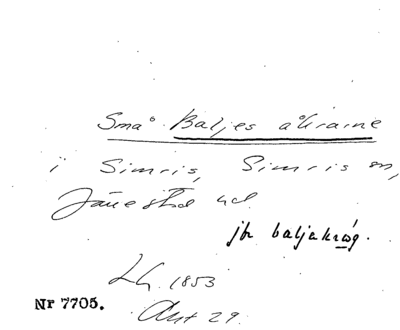 Små Baljes åkrarne
i Simris, Simris sn,
Järrestad hd.
jfr baljakrog.
Lh. 1853
Akt 29
Nr 7705.